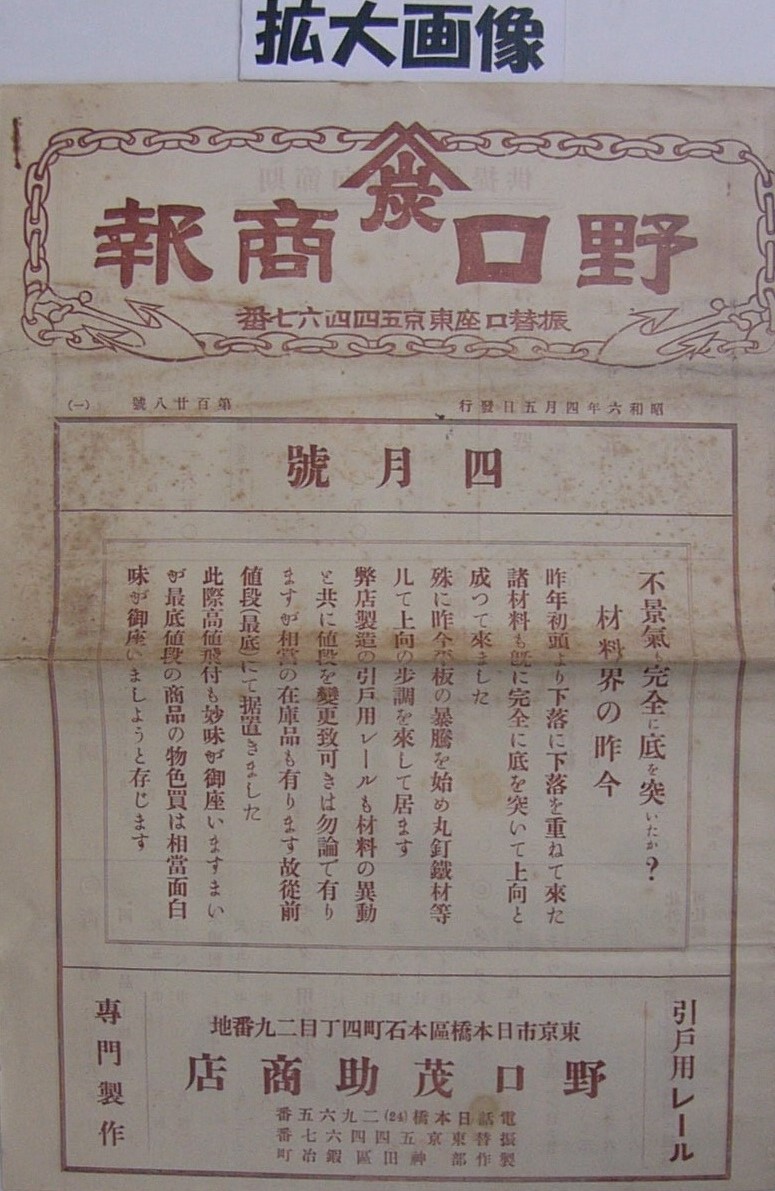 拡大画像
炭
野口商報
振替口座東京五四四六七番
昭和六年四月五日發行
第百廿八號
(一)
四月號
不景氣も完全に底を突いたか?
材料界の昨今
昨年初頭より下落に下落を重ねて來た
諸材料も既に完全に底を突いて上向と
成つて來ました
殊に昨今板の暴騰を始め丸釘鐵材等
凡て上向の歩調を來して居ます
弊店製造の引戸用レールも材料の異動
と共に値段を變更致可きは勿論で有り
ますが相當の在庫品も有ります故從前
値段(最底)にて据置きました
此際高値飛付も妙味が御座いますまい
が最底値段の商品の物色買は相當面白
味が御座いましようと存じます
引戸用レール
東京市日本橋區本石町四丁目二九番地
野口茂助商店
電話日本橋(24)二九六五番
振替東京五四四六七番
製作部神田區鍛冶町
專門製作